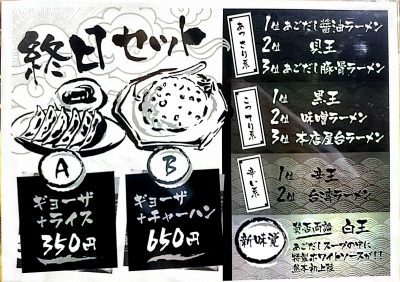 終日セット
A
ギョーザ
+ライス
350円
B
ギョーザ
+チャーハン
650円
あっさり系
1位 あごだし醤油ラーメン
2位 貝王
3位 あごだし豚骨ラーメン
こってり系
1位 黒王
2位 味噌ラーメン
3位 本店屋台ラーメン
辛い系
1位 辛王
2位 台湾ラーメン
新味覚
白王
あごだしスープの中に
特製ホワイトソースが!!
熊本初上陸